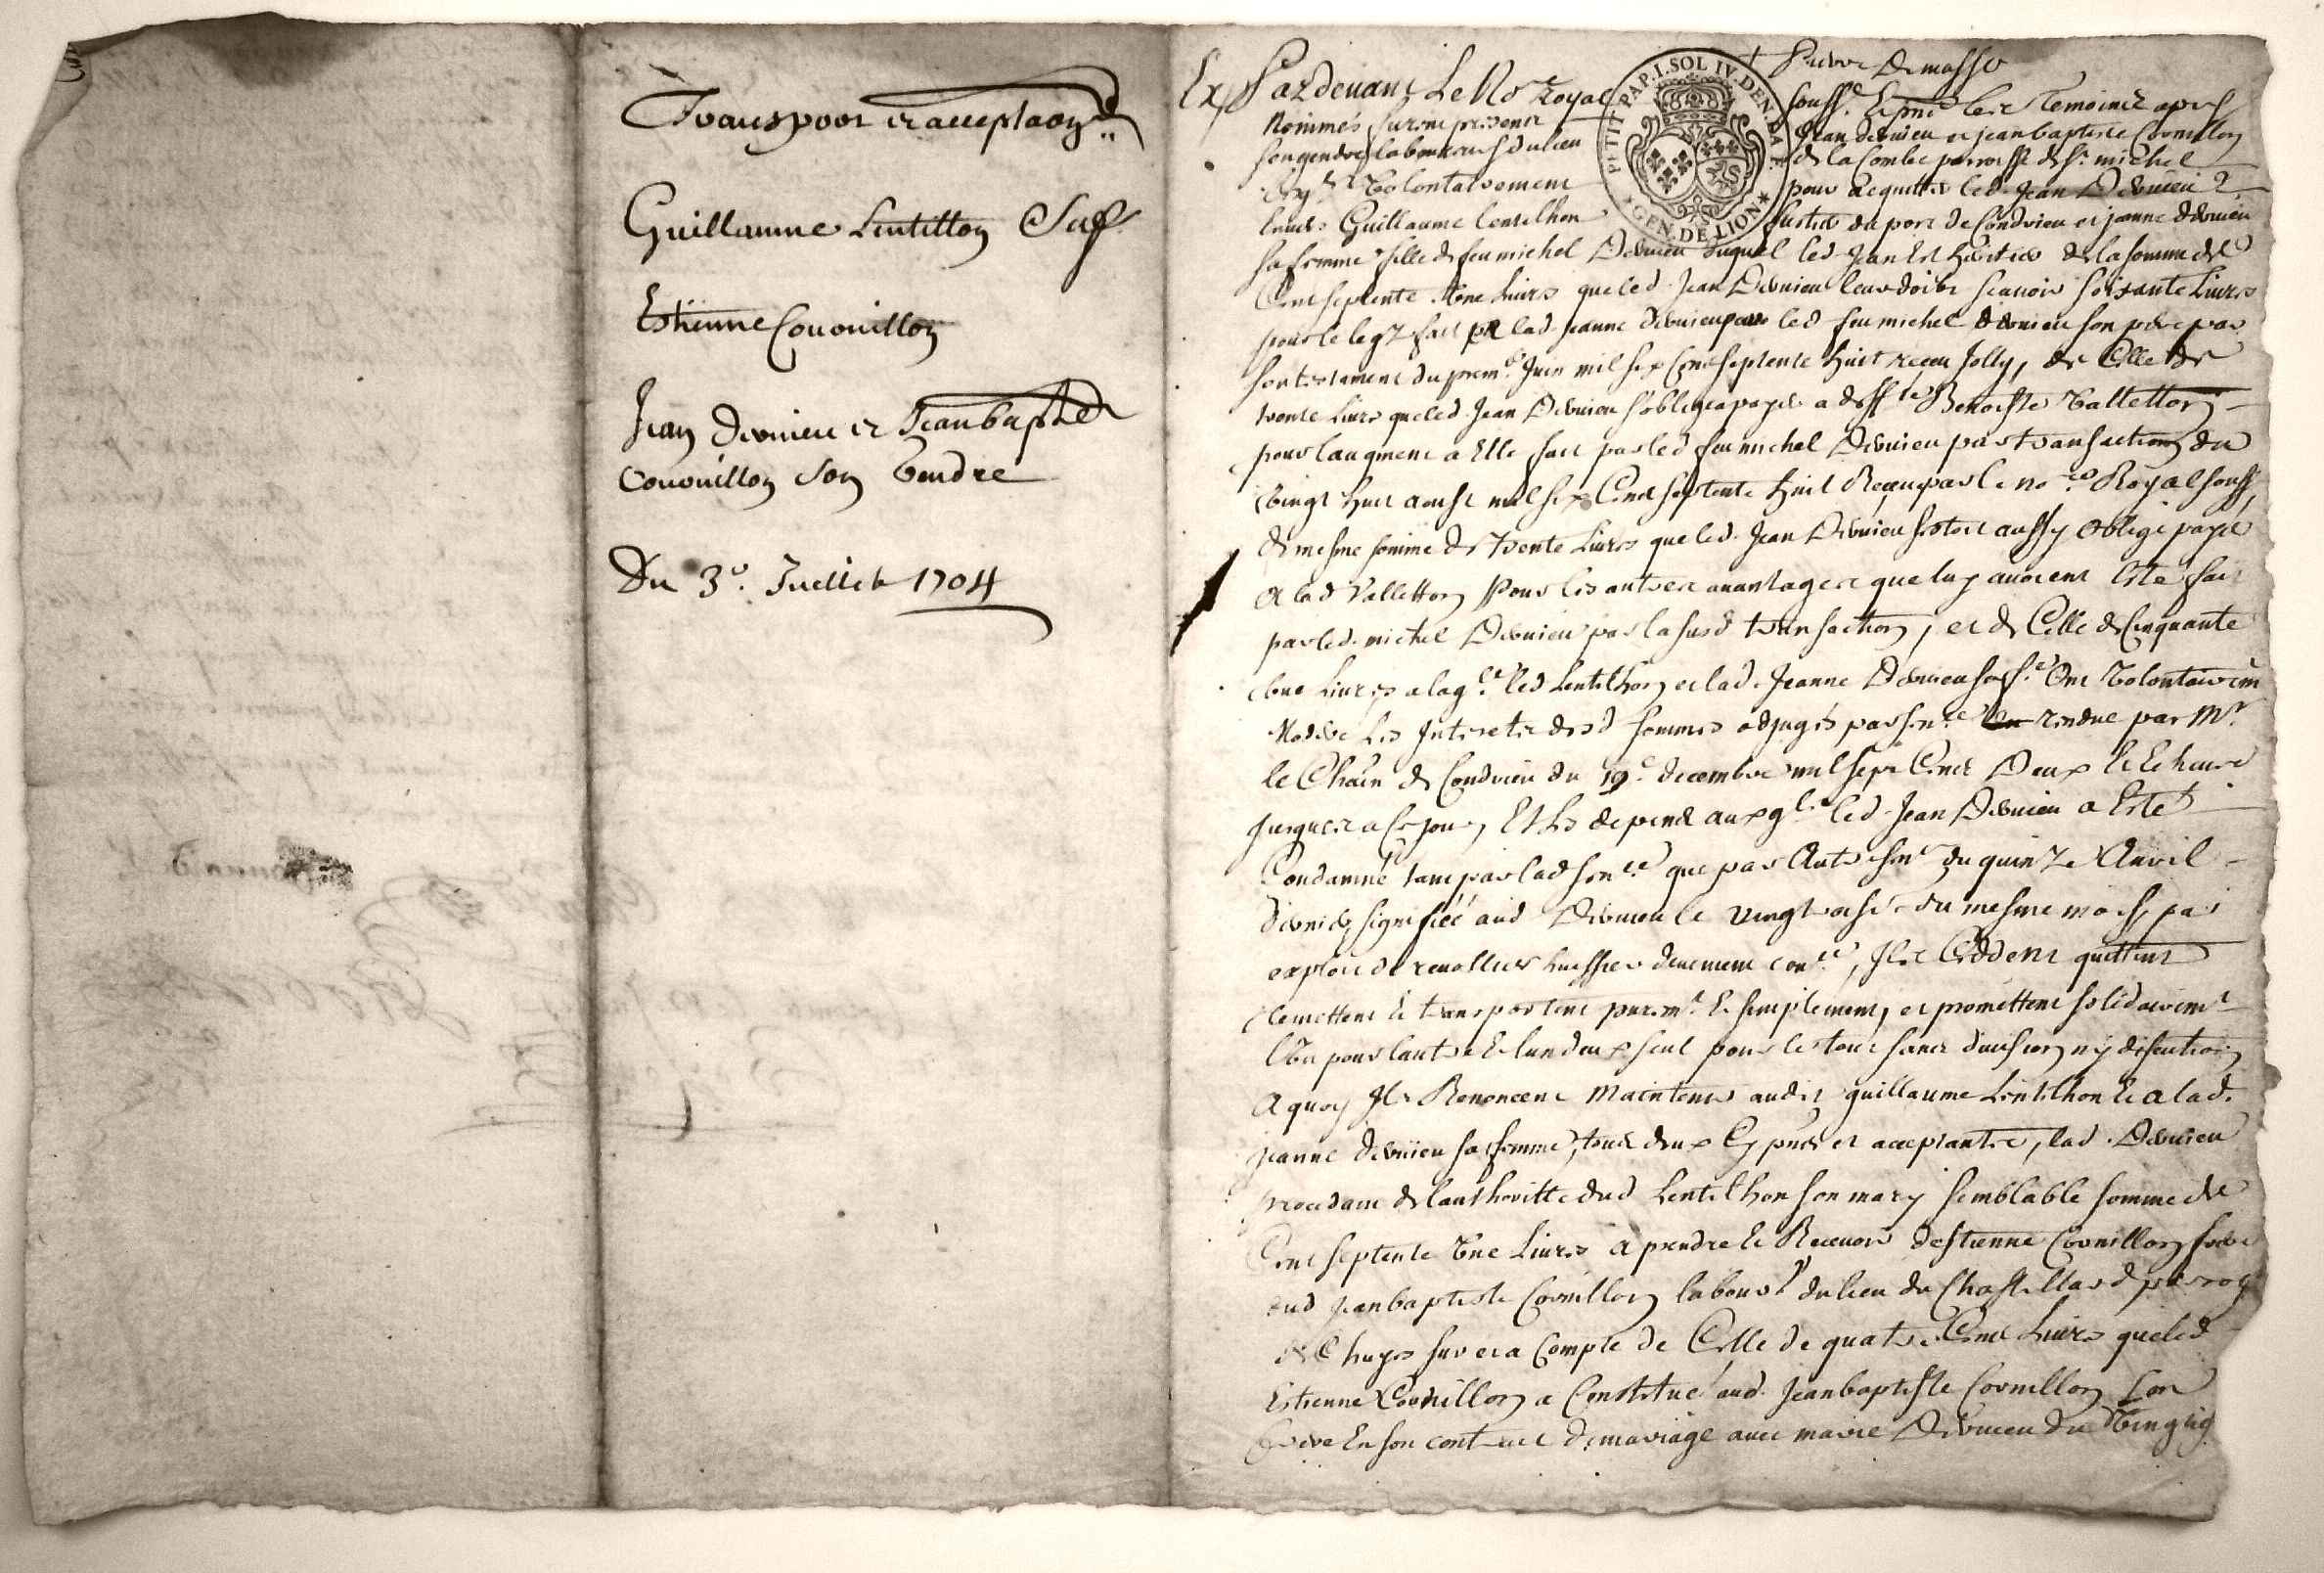 Transport et acceptaon
Guillaume Lentillon Suf.
Estienne Cornillon
Jean Dervieu et Jean baptle
Cornillon son Gendre
Du 3e. Juellet 1704
PETIT PAP. I. SOL IV. DEN. LA F.
GEN. DE LION
Ex Pardevant Le No.re Royal soussé. Et pnts les Temoins apres
Nommés furent presents Jean dervieu et jean baptiste Cornillon
son gendre laboureurs du lieu de la Combe parroisse de St. michel
volontairement pour acquitter led. Jean Dervieu
Envers Guillaume lentilhon du port de Condrieu et jeanne dervieu
sa femme fille de feu michel Dervieu duquel led. Jean Est heritier de la somme de
Cent septente Une livres que led. Jean Dervieu leur doibt scavoir soixante livres
pour le legt fait pr lad. jeanne dervieu par led. feu michel dervieu son pere par
son testament du prem.er Juin mil six Cent septente huit receu Jolly, de Celle de
trente livres que led. Jean Dervieu s'obligea payer a deff.te Benoiste Valletton
pour laugment a Elle fait par led. feu michel Dervieu par transaction du
vingt huit aoust mil six Cent septente huit Receu par le no.re Royal souss.
de mesme somme de trente livres que led. Jean Dervieu sestoit aussy obligé payer
A lad. Valletton pour les autres avantages que luy avoient Esté fait
par led. michel Dervieu par la susd. transaction, et de Celle de Cinquante
Une livres a laq.lle led. Lentilhon et lad. Jeanne Dervieu sa f.e Ont volontairem
Moderé les Interets desd. sommes adjugés par sen.ce rendue par Mr.
le Châin de Condrieu du 19e. decembre mil sept Cent Deux Et Echeus
jusques a Ce jour, Et les depend auxq.ls led. Jean Dervieu a Esté
Condamné tant par lad. sen.ce que par Autre sen.ce du quinze Avril
dernier, signifiée aud. Dervieu le vingt du mesme mois, par
exploit de huissier deuement con.lé, Ils Ceddent quittent
remettent et transportent purem.t Et simplement, et promettent solidairem.t
l'Un pour lautre Et lun deux seul pour le tout sans division ny discution
A quoy Ils Renoncent Maintenir audit guillaume Lentilhon Et a lad.
jeanne dervieu sa femme, tous deux Cy pnts et acceptants, lad. Dervieu
procedant de lauthoritté dud. Lentilhon son mary semblable somme de
Cent septente Une livres a prendre Et Recevoir destienne Cornillon frere
dud. jean baptiste Cornillon labour.r du lieu du Chastellard parroi
de Chuyes sur et a Compte de Celle de quatre Cent livres que led.
Estienne Cornillon a Constitué aud. jean baptiste Cornillon son
frere En son contract de mariage avec marie Dervieu du Vingt